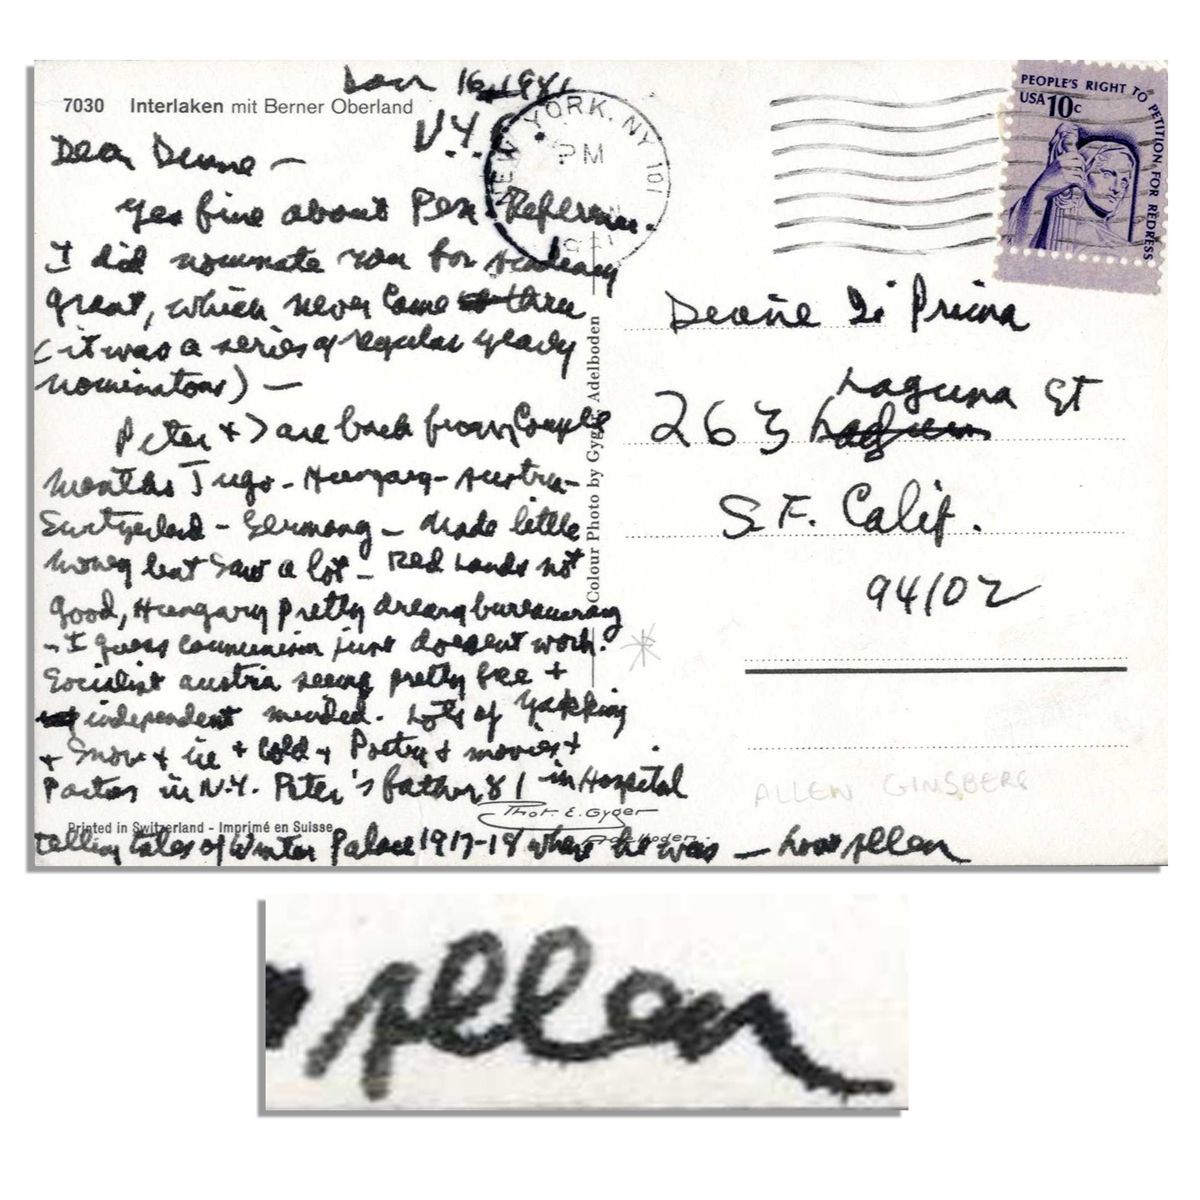 Jan 16, 1981
7030 Interlaken mit Berner Oberland
N.Y.
Dear Diane —
Yes fine about Pen Reference.
I did nominate you for Academy
grant, which never came thru
(it was a series of regular yearly
nominators) —
Peter & I are back from Couple
months Jugo - Hungary - Austria -
Switzerland - Germany — Made little
money but saw a lot — Red Lands not
good, Hungary pretty dreary bureaucracy
- I guess communism just doesent work.
Socialist Austria seems pretty free +
independent minded. Lots of Yakking
+ Snow + ice + Cold + Poetry + movies +
Parties in N.Y. Peter's father 81 in Hospital
telling tales of Winter Palace 1917-18 where he was — Love Allen
Printed in Switzerland - Imprimé en Suisse
Phot. E. Gyger
Adelboden
Colour Photo by Gyger Adelboden
NEW YORK, NY 101
PM
1981
PEOPLE'S RIGHT TO PETITION FOR REDRESS
USA 10c
Diane Di Prima
263 Laguna St
S.F. Calif.
94102
ALLEN GINSBERG
Allen